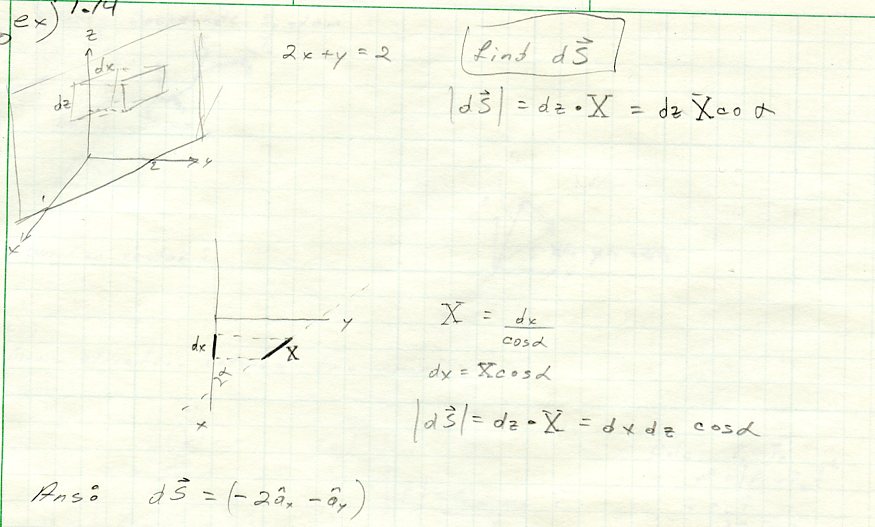 ex) 1.14
z
dx
2x+y=2
find dS⃗
dz
|dS⃗| = dz • X = dz X co α
2
y
1
x
y
dx
X
α
x
X = dx / cosα
dx = X cosα
|dS⃗| = dz • X = dx dz cosα
Ans: dS⃗ = (-2âx - ây)